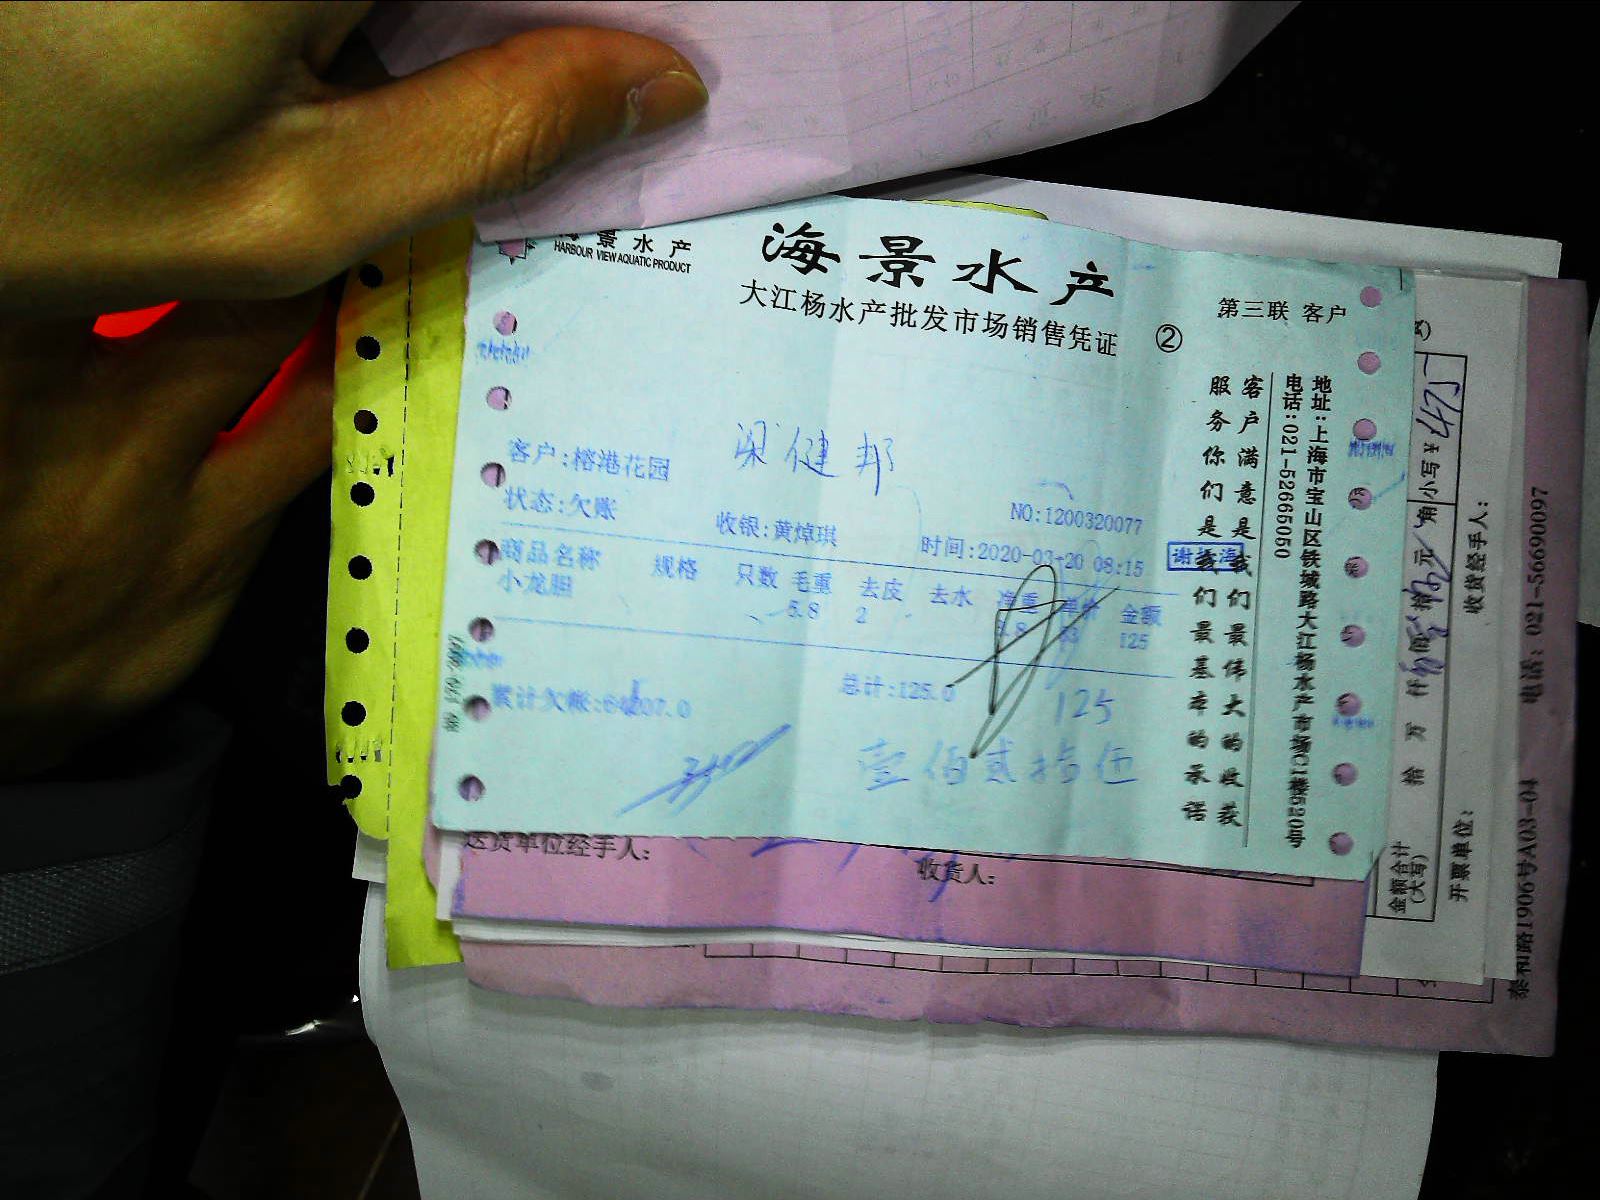 景水产
HARBOUR VIEW AQUATIC PRODUCT
海景水产
大江杨水产批发市场销售凭证
②
第三联 客户
客户:榕港花园
梁健邦
状态:欠账
收银:黄焯琪
NO:1200320077
时间:2020-03-20 08:15
商品名称 规格 只数 毛重 去皮 去水 净重 单价 金额
小龙胆 5.8 2 125
累计欠账:
总计:125.0
125
壹佰贰拾伍
客户满意是我们最伟大的收获
服务你们是我们最基本的承诺
地址:上海市宝山区铁城路大江杨水产市场C1楼520号
电话:021-52665050
送货单位经手人:
收货人:
小写¥
金额合计
(大写)
拾 万 仟 佰 拾 元 角
收货经手人:
开票单位:
泰和路1906号A03-04 电话: 021-56690097